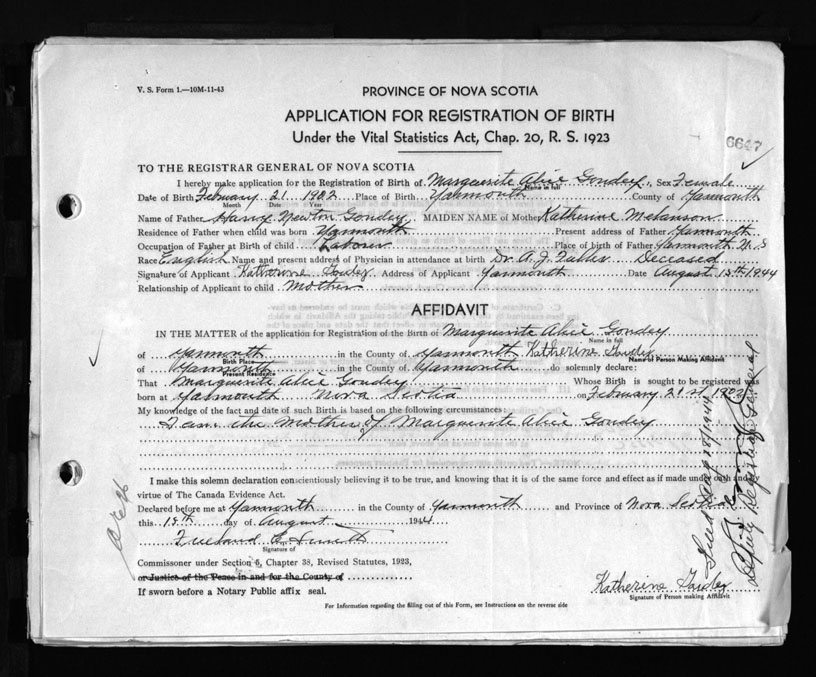 V. S. Form 1.—10M-11-43
PROVINCE OF NOVA SCOTIA
APPLICATION FOR REGISTRATION OF BIRTH
Under the Vital Statistics Act, Chap. 20, R. S. 1923
6647
TO THE REGISTRAR GENERAL OF NOVA SCOTIA
I hereby make application for the Registration of Birth of Marguerite Alice Goudey, Sex Female
Name in full
Date of Birth February 21 1902 Place of Birth Yarmouth County of Yarmouth
Month Date Year
Name of Father Harry Newton Goudey, MAIDEN NAME of Mother Katherine Melanson
Residence of Father when child was born Yarmouth Present address of Father Yarmouth
Occupation of Father at Birth of child Laborer Place of birth of Father Yarmouth N.S
Race English Name and present address of Physician in attendance at birth Dr. A. J. Fuller Deceased
Signature of Applicant Katherine Goudey Address of Applicant Yarmouth Date August 15th 1944
Relationship of Applicant to child Mother
AFFIDAVIT
IN THE MATTER of the application for Registration of the Birth of Marguerite Alice Goudey
Name in full
of Yarmouth in the County of Yarmouth Katherine Goudey
Birth Place Name of Person Making Affidavit
of Yarmouth in the County of Yarmouth do solemnly declare:
Present Residence
That Marguerite Alice Goudey Whose Birth is sought to be registered was
born at Yarmouth Nova Scotia on February 21st 1902
My knowledge of the fact and date of such Birth is based on the following circumstances:
I am the Mother of Marguerite Alice Goudey
I make this solemn declaration conscientiously believing it to be true, and knowing that it is of the same force and effect as if made under oath and
virtue of The Canada Evidence Act.
Declared before me at Yarmouth in the County of Yarmouth and Province of Nova Scotia
this 15th day of August 1944
Signature of
Commissioner under Section 6, Chapter 38, Revised Statutes, 1923,
or Justice of the Peace in and for the County of
If sworn before a Notary Public affix seal.
Katherine Goudey
Signature of Person making Affidavit
For Information regarding the filling out of this Form, see Instructions on the reverse side
Deputy Registrar General